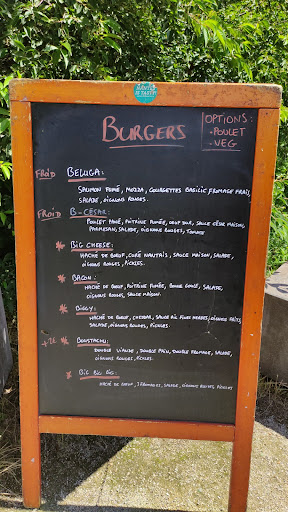 BURGERS
OPTIONS:
- POULET
- VEG
FROID BELUGA:
SAUMON FUMÉ, MOZZA, COURGETTES BASILIC FROMAGE FRAIS,
SALADE, OIGNONS ROUGES.
FROID B-CÉSAR:
POULET PANÉ, POITRINE FUMÉE, OEUF DUR, SAUCE CÉSAR MAISON,
PARMESAN, SALADE, OIGNONS ROUGES, TOMATE
* BIG CHEESE:
HACHÉ DE BOEUF, CURÉ NANTAIS, SAUCE MAISON, SALADE,
OIGNONS ROUGES, PICKLES.
* BACON:
HACHÉ DE BOEUF, POITRINE FUMÉE, SALADE,
OIGNONS ROUGES, SAUCE MAISON.
* BIGGY:
HACHÉ DE BOEUF, CHEDDAR, SAUCE AIL FINES HERBES, OIGNONS FRITS,
SALADE, OIGNONS ROUGES, PICKLES.
+2€ * BOUSTACHU:
DOUBLE VIANDE, DOUBLE PAIN, DOUBLE FROMAGE, SALADE,
OIGNONS ROUGES, PICKLES.
* BIG BIG BIG:
HACHÉ DE BOEUF, 3 FROMAGES, SALADE, OIGNONS ROUGES, PICKLES